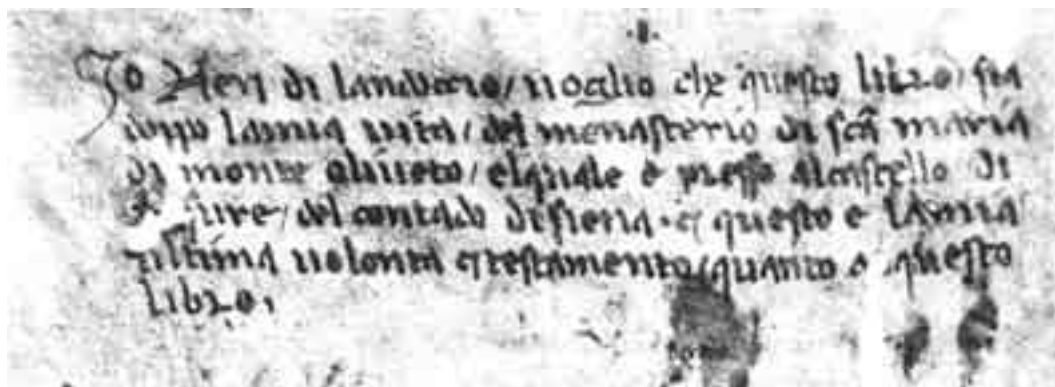 Io Neri di landoccio/ uoglio che questo libro/ sia
dopo lamia uita/ del menasterio di sca maria
di monte oliueto/ elquale è presso alcastello di
/ del contado disiena. et questo e lamia
ultima uolonta et testamento/ quanto a questo
libro.